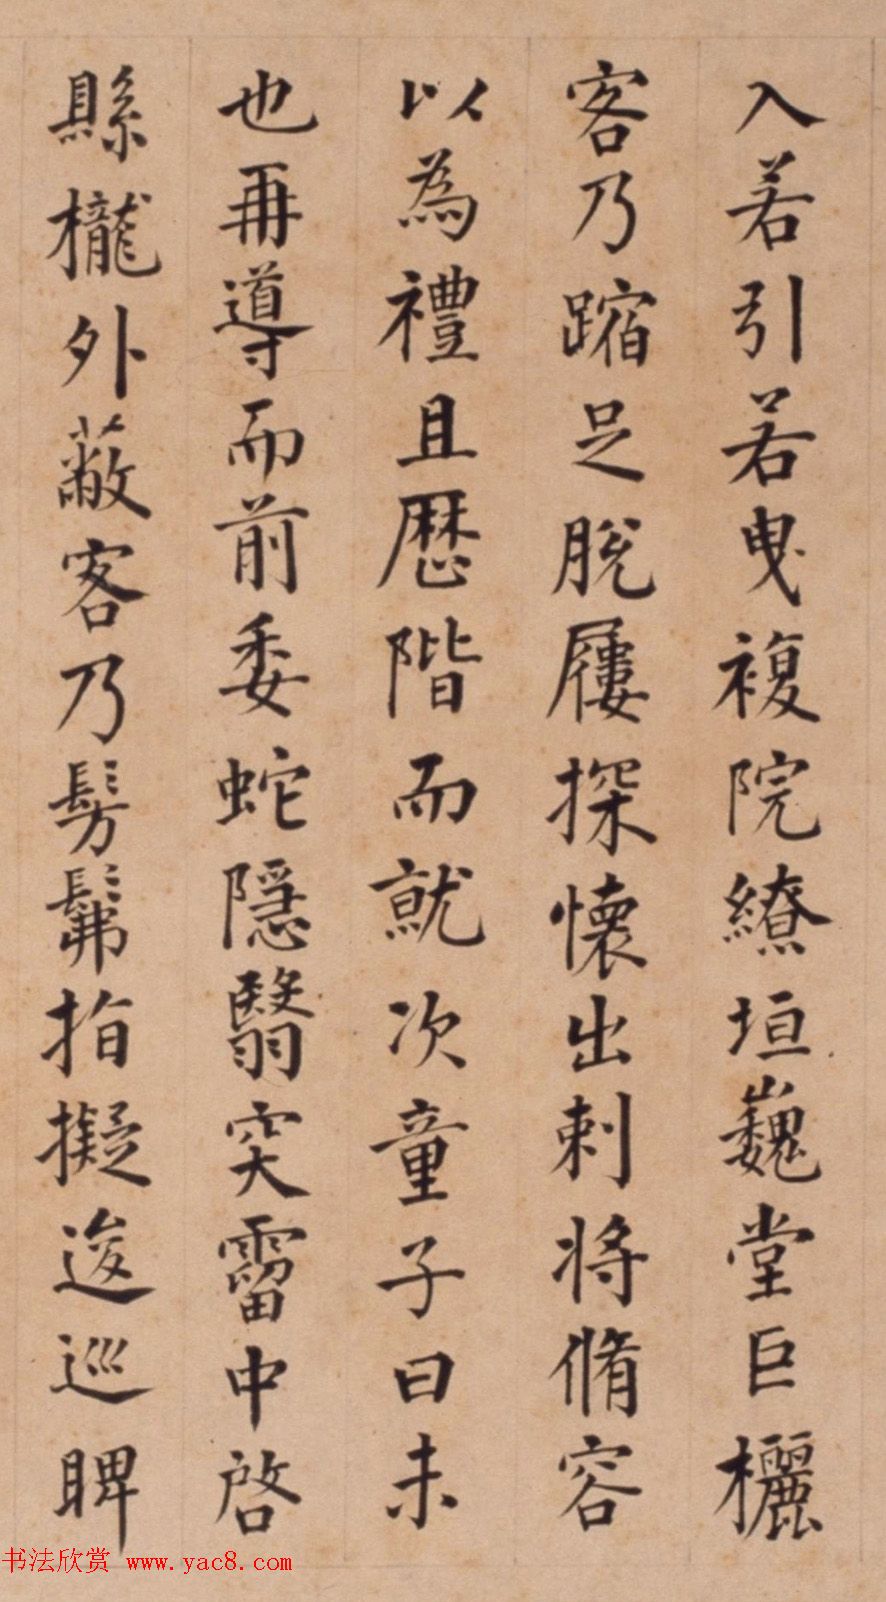 入若引若曳複院繚垣巍堂巨欐
客乃蹜足脫屨探懷出刺將脩容
以為禮且歷階而就次童子曰未
也再導而前委蛇隱翳穾霤中啓
縣櫳外蔽客乃髣髴指擬逡巡睥
书法欣赏 www.yac8.com